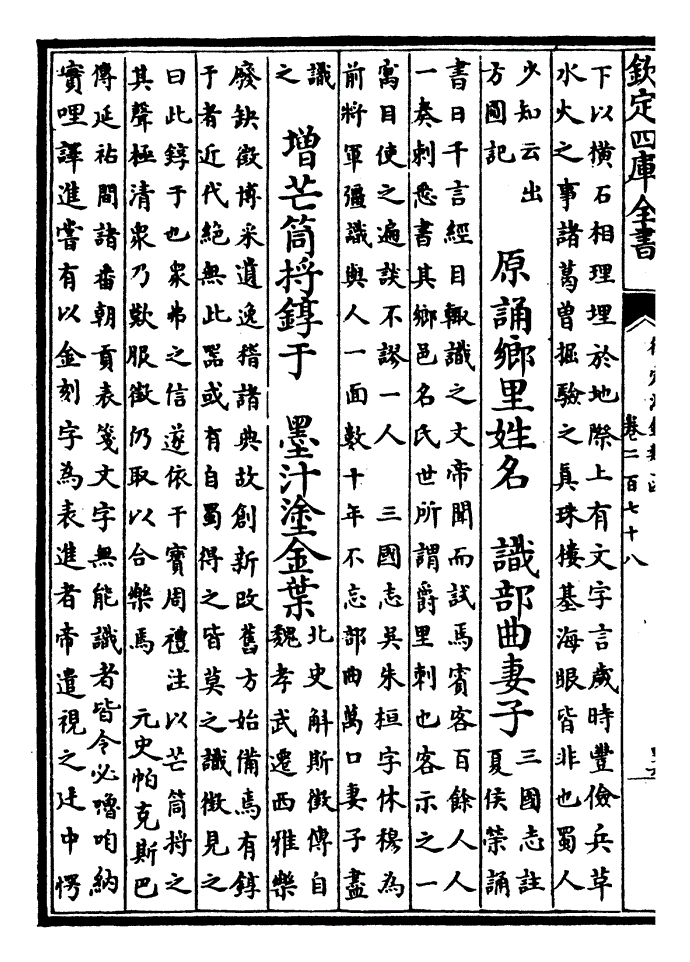 欽定四庫全書
卷二百七十八
下以横石相理埋於地際上有文字言歲時豐儉兵草
水火之事諸葛曾掘驗之真珠樓基海眼皆非也蜀人
少知云出
方圓記
原誦鄉里姓名　識部曲妻子
三國志註
夏侯榮誦
書日千言經目輒識之文帝聞而試焉賓客百餘人人
一奏刺悉書其鄉邑名氏世所謂爵里刺也客示之一
寓目使之遍談不謬一人　三國志吳朱桓字休穆為
前將軍彊識與人一面數十年不忘部曲萬口妻子盡
識
之
增芒筒捋錞于　墨汁塗金葉
北史斛斯徵傳自
魏孝武遷西雅樂
廢缺徵博采遺逸稽諸典故創新改舊方始備焉有錞
于者近代絶無此器或有自蜀得之皆莫之識徵見之
曰此錞于也衆弗之信遂依干寳周禮注以芒筒捋之
其聲極清衆乃歎服徵仍取以合樂焉　元史帕克斯巴
傳延祐間諸番朝貢表箋文字無能識者皆令必嚕咱納
實哩譯進嘗有以金刻字為表進者帝遣視之廷中愕